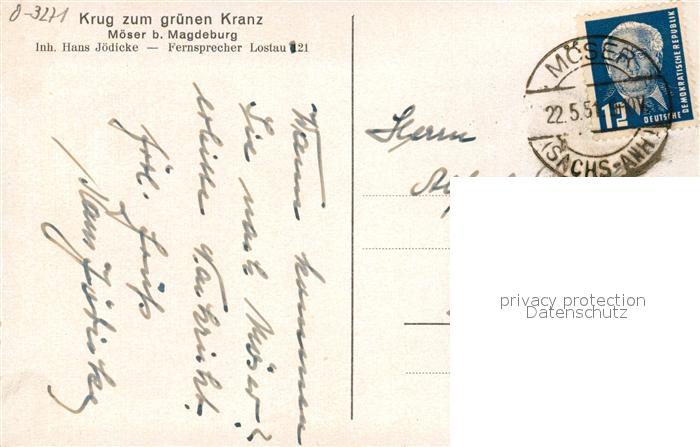 0-3271
Krug zum grünen Kranz
Möser b. Magdeburg
Inh. Hans Jödicke — Fernsprecher Lostau 121
Wann kommen
Sie nach Möser?
erbitte Nachricht.
frdl. Gruß
Hans Jödicke
Herrn
MÖSER
22.5.51
(SACHS-ANH)
DEUTSCHE DEMOKRATISCHE REPUBLIK
privacy protection
Datenschutz